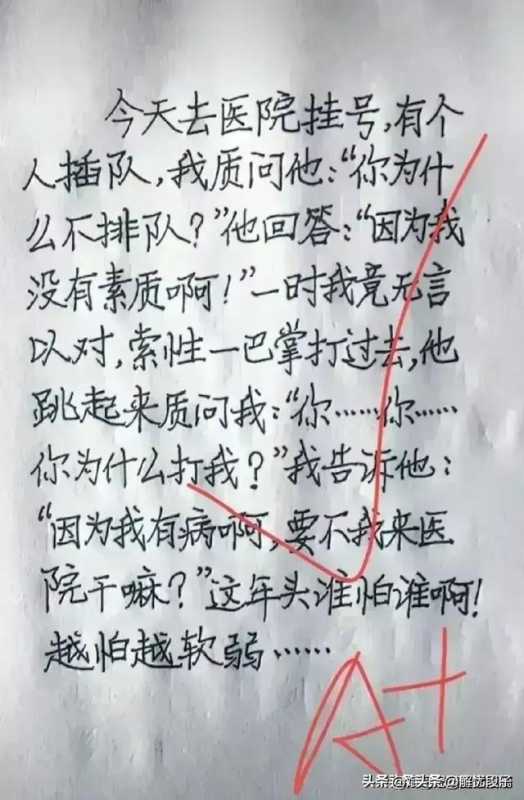 今天去医院挂号，有个
人插队，我质问他：“你为什
么不排队？”他回答：“因为我
没有素质啊！”一时我竟无言
以对，索性一巴掌打过去，他
跳起来质问我：“你……你……
你为什么打我？”我告诉他：
“因为我有病啊，要不我来医
院干嘛？”这年头谁怕谁啊！
越怕越软弱……
A+